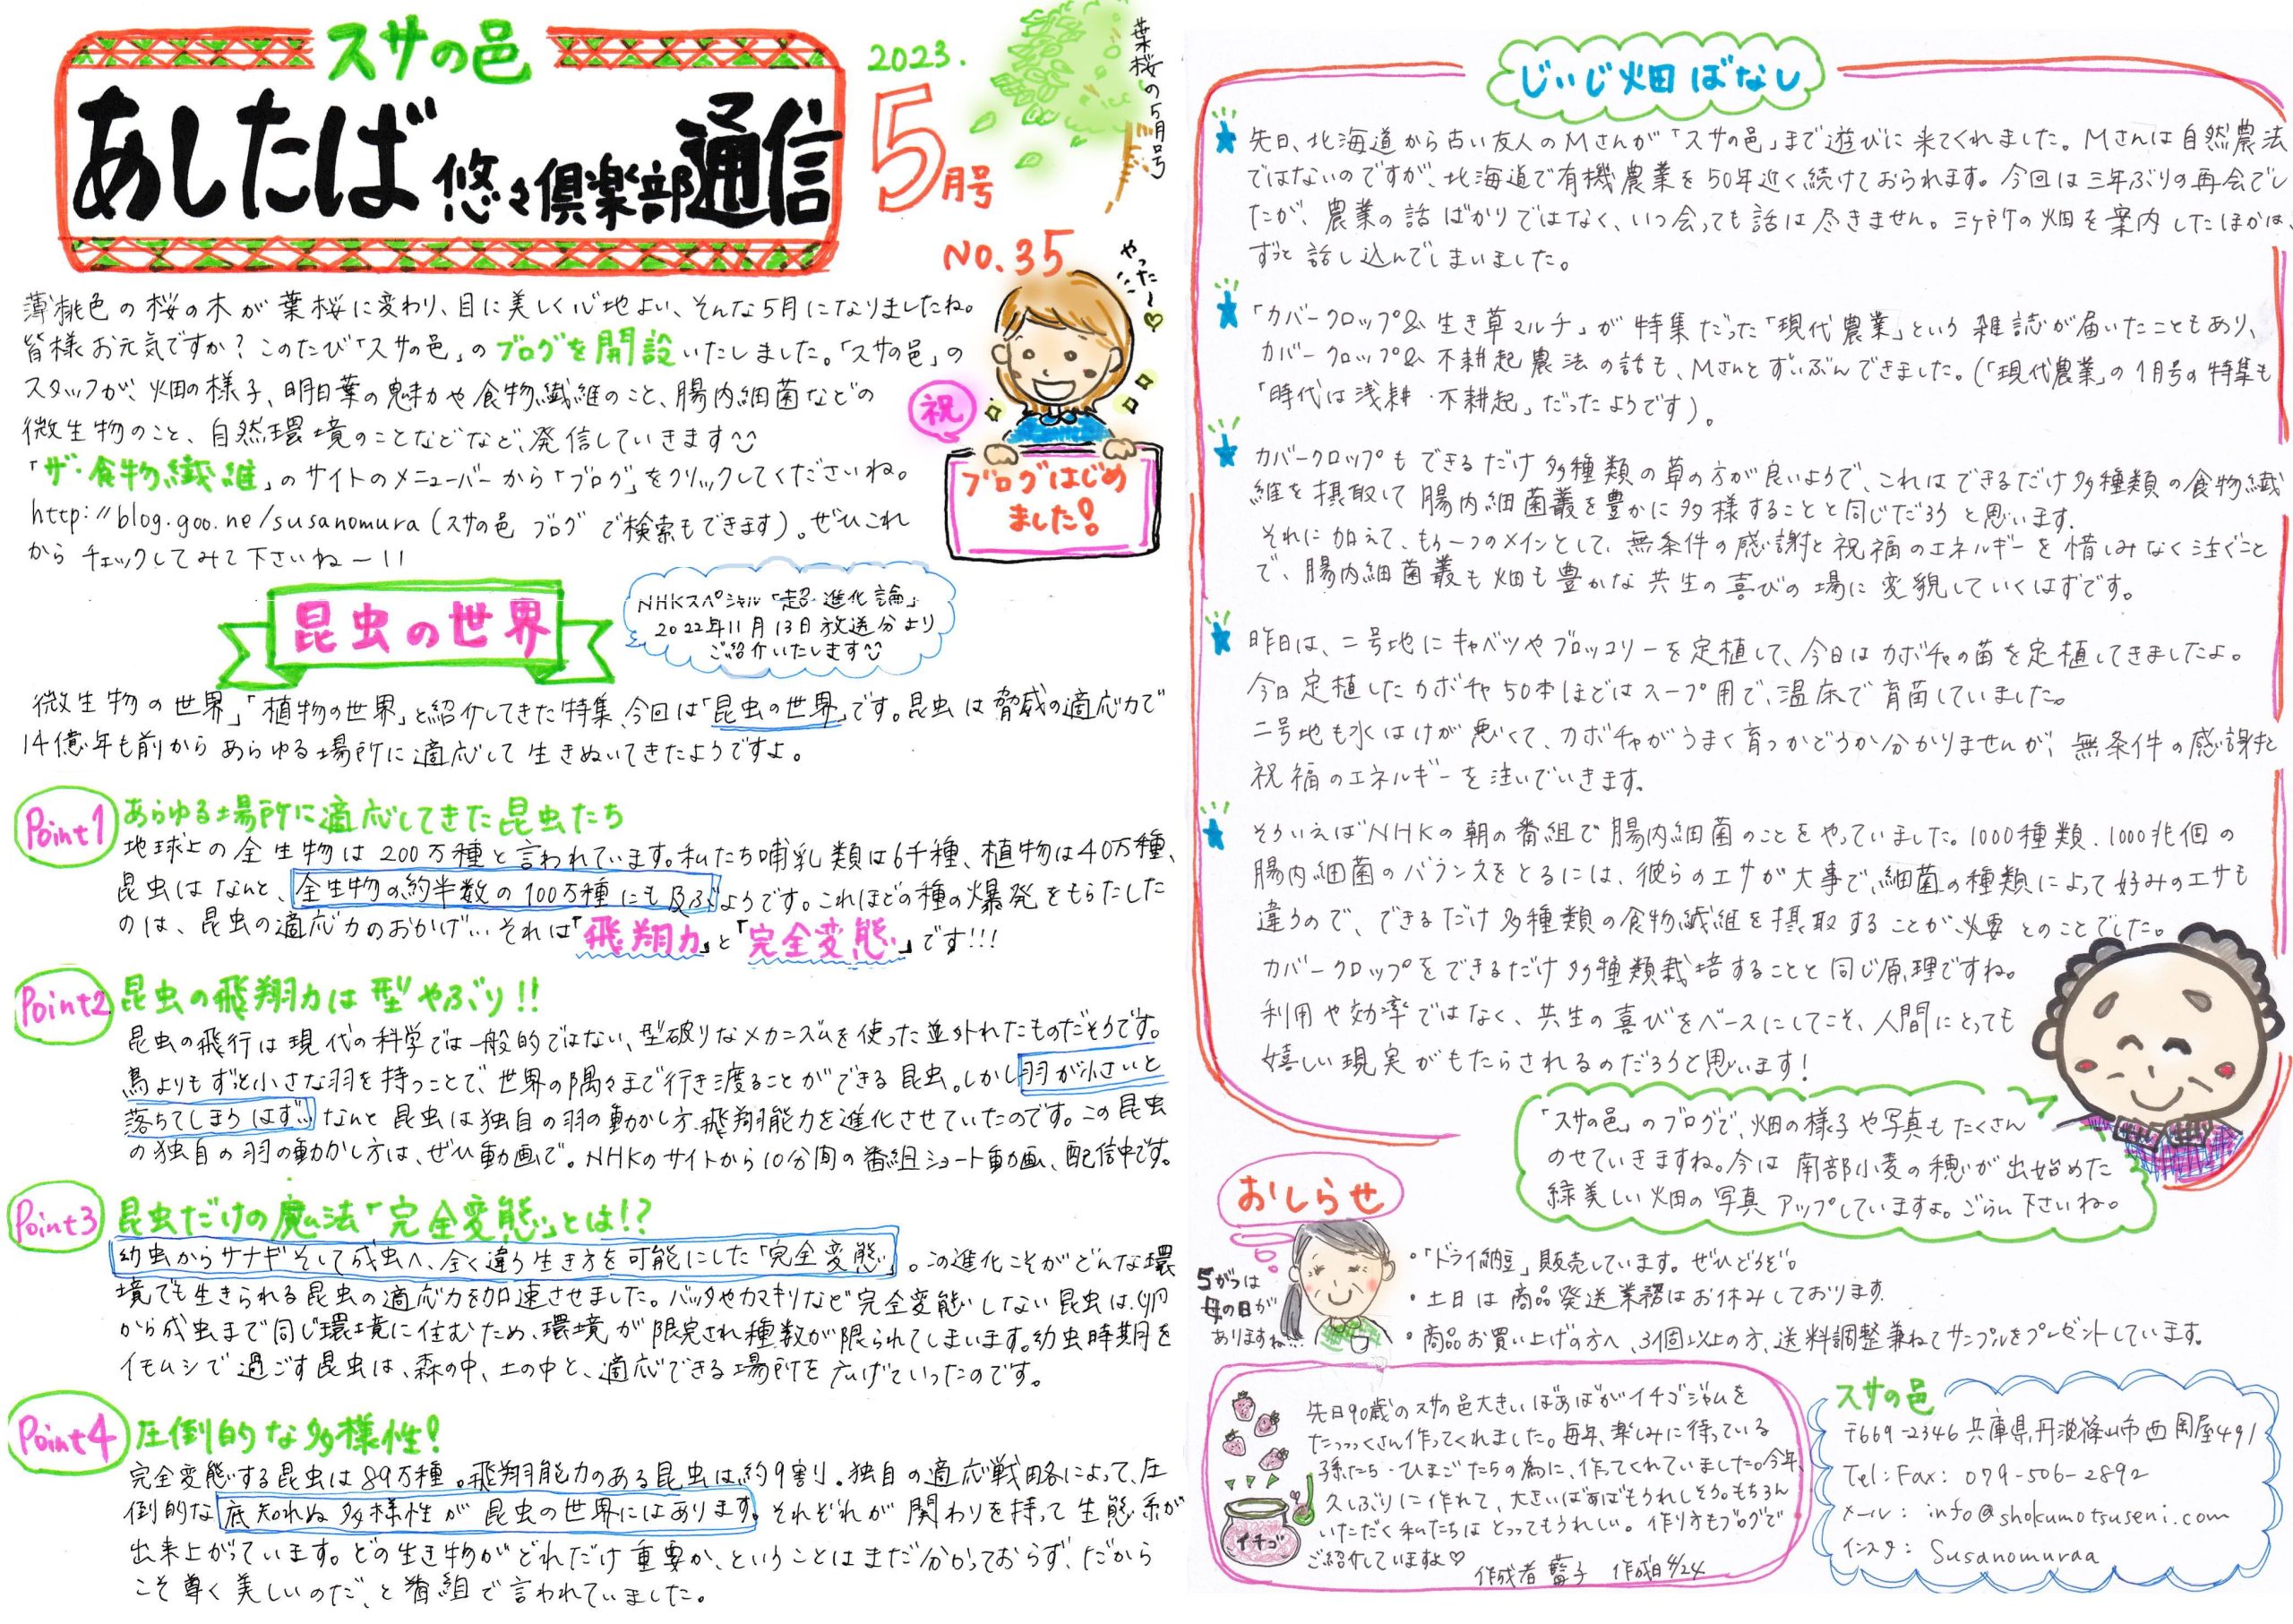 スサの邑
あしたば悠々倶楽部通信
2023.
5月号
葉桜の5月号
NO.35
やった〜♡
祝
ブログはじめ
ました!
薄桃色の桜の木が葉桜に変わり、目に美しく心地よい、そんな5月になりましたね。
皆様お元気ですか?このたび「スサの邑」のブログを開設いたしました。「スサの邑」の
スタッフが、畑の様子、明日葉の魅力や食物繊維のこと、腸内細菌などの
微生物のこと、自然環境のことなどなど、発信していきます
「ザ・食物繊維」のサイトのメニューバーから「ブログ」をクリックしてくださいね。
http://blog.goo.ne/susanomura(スサの邑 ブログ で検索もできます)。ぜひこれ
から チェックしてみて下さいねー!!
昆虫の世界
NHKスペシャル「超・進化論」
2022年11月13日放送分より
ご紹介いたします
微生物の世界」「植物の世界」と紹介してきた特集、今回は「昆虫の世界」です。昆虫は脅威の適応力で
14億年も前からあらゆる場所に適応して生きぬいてきたようですよ。
Point1 あらゆる場所に適応してきた昆虫たち
地球上の全生物は200万種と言われています。私たち哺乳類は6千種、植物は40万種、
昆虫はなんと、全生物の約半数の100万種にも及ぶようです。これほどの種の爆発をもらたした
のは、昆虫の適応力のおかげ…それは「飛翔力」と「完全変態」です!!!
Point2 昆虫の飛翔力は型やぶり!!
昆虫の飛行は現代の科学では一般的ではない、型破りなメカニズムを使った並外れたものだそうです。
鳥よりもずっと小さな羽を持つことで、世界の隅々まで行き渡ることができる昆虫。しかし羽が小さいと
落ちてしまうはず…なんと昆虫は独自の羽の動かし方、飛翔能力を進化させていたのです。この昆虫
の独自の羽の動かし方は、ぜひ動画で。NHKのサイトから10分間の番組ショート動画、配信中です。
Point3 昆虫だけの魔法「完全変態」とは!?
幼虫からサナギそして成虫へ、全く違う生き方を可能にした「完全変態」。この進化こそがどんな環
境でも生きられる昆虫の適応力を加速させました。バッタやカマキリなど完全変態しない昆虫は、卵
から成虫まで同じ環境に住むため、環境が限定され種数が限られてしまいます。幼虫時期を
イモムシで過ごす昆虫は、森の中、土の中と、適応できる場所を広げていったのです。
Point4 圧倒的な多様性!
完全変態する昆虫は89万種。飛翔能力のある昆虫は、約9割。独自の適応戦略によって、圧
倒的な底知れぬ多様性が昆虫の世界にはあります。それぞれが関わりを持って生態系が
出来上がっています。どの生き物がどれだけ重要か、ということはまだ分かっておらず、だから
こそ尊く美しいのだ、と番組で言われていました。
じいじ畑ばなし
★ 先日、北海道から古い友人のMさんが「スサの邑」まで遊びに来てくれました。Mさんは自然農法
ではないのですが、北海道で有機農業を50年近く続けておられます。今回は三年ぶりの再会でし
たが、農業の話ばかりではなく、いつ会っても話は尽きません。三ヶ所の畑を案内したほかは、
ずっと話し込んでしまいました。
★ 「カバークロップ&生き草マルチ」が特集だった「現代農業」という雑誌が届いたこともあり、
カバークロップ&不耕起農法の話も、Mさんとずいぶんできました。(「現代農業」の1月号の特集も
「時代は浅耕・不耕起」だったようです)。
★ カバークロップもできるだけ多種類の草の方が良いようで、これはできるだけ多種類の食物繊
維を摂取して腸内細菌叢を豊かに多様することと同じだろうと思います。
それに加えて、もう一つのメインとして、無条件の感謝と祝福のエネルギーを惜しみなく注ぐこと
で、腸内細菌叢も畑も豊かな共生の喜びの場に変貌していくはずです。
★ 昨日は、二号地にキャベツやブロッコリーを定植して、今日はカボチャの苗を定植してきましたよ。
今日定植したカボチャ50本ほどはスープ用で、温床で育苗していました。
二号地も水はけが悪くて、カボチャがうまく育つかどうか分かりませんが、無条件の感謝と
祝福のエネルギーを注いでいきます。
★ そういえばNHKの朝の番組で腸内細菌のことをやっていました。1000種類、1000兆個の
腸内細菌のバランスをとるには、彼らのエサが大事で、細菌の種類によって好みのエサも
違うので、できるだけ多種類の食物繊維を摂取することが必要とのことでした。
カバークロップをできるだけ多種類栽培することと同じ原理ですね。
利用や効率ではなく、共生の喜びをベースにしてこそ、人間にとっても
嬉しい現実がもたらされるのだろうと思います!
「スサの邑」のブログで、畑の様子や写真もたくさん
のせていきますね。今は南部小麦の穂が出始めた
緑美しい畑の写真アップしていますよ。ごらん下さいね。
おしらせ
5がつは
母の日が
ありますね…
・「ドライ納豆」販売しています。ぜひどうぞ。
・土日は商品発送業務はお休みしております。
・商品お買い上げの方へ、3個以上の方、送料調整兼ねてサンプルをプレゼントしています。
先日90歳のスサの邑大きいばあばがイチゴジャムを
たっっっくさん作ってくれました。毎年、楽しみに待っている
孫たち・ひまごたちの為に、作ってくれていました。今年、
久しぶりに作れて、大きいばあばもうれしそう。もちろん
いただく私たちはとってもうれしい。作り方もブログで
ご紹介していますよ♡
作成者 藍子 作成日4/24
イチゴ
スサの邑
〒669-2346 兵庫県丹波篠山市西岡屋491
Tel:Fax: 079-506-2892
メール: info@shokumotsuseni.com
インスタ: Susanomuraa